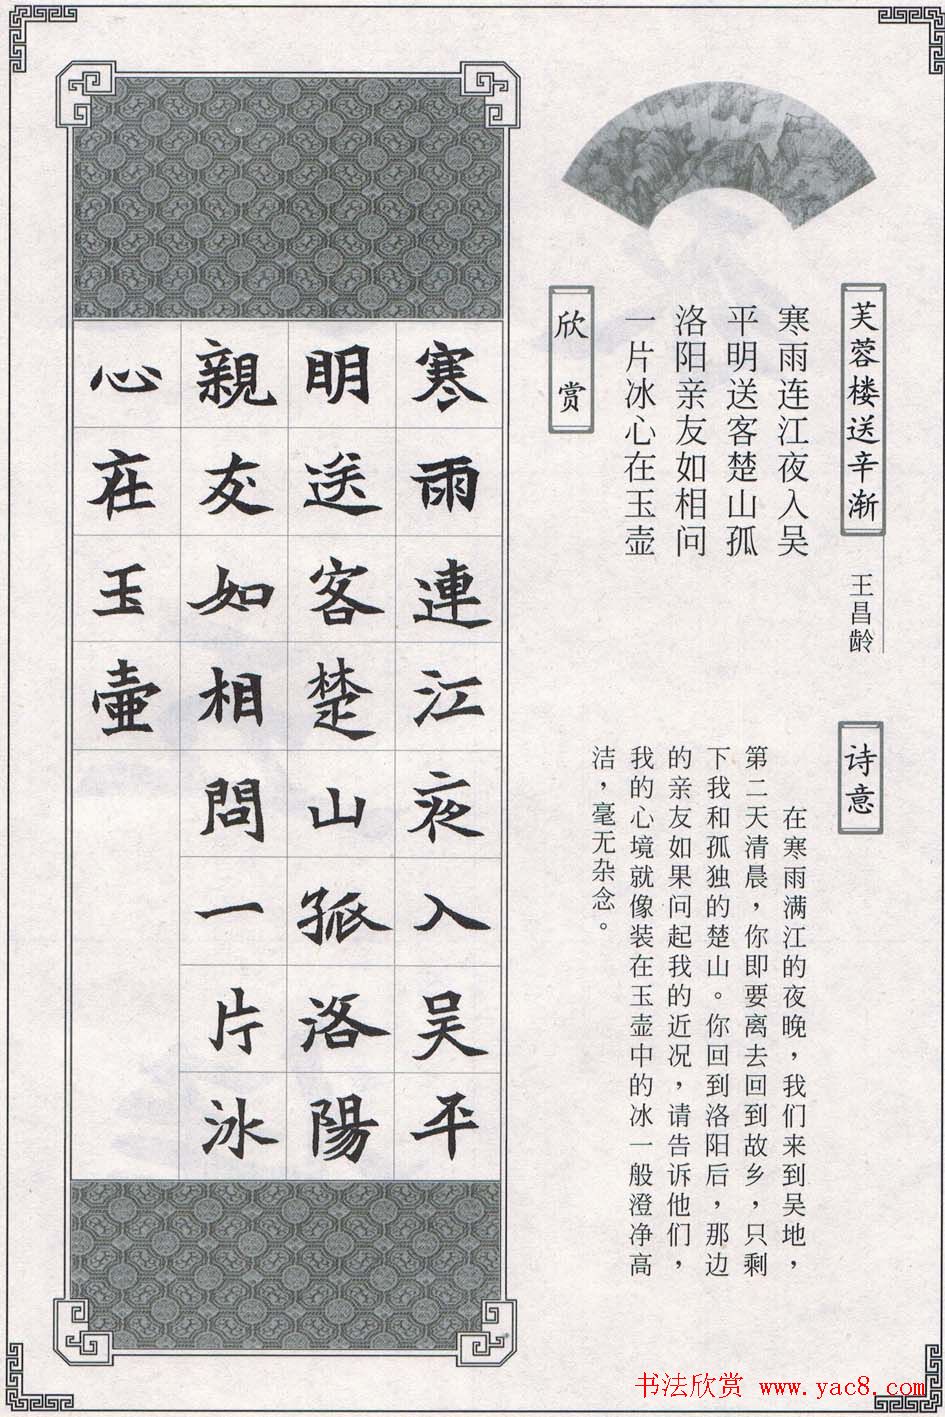 芙蓉楼送辛渐
王昌龄
寒雨连江夜入吴
平明送客楚山孤
洛阳亲友如相问
一片冰心在玉壶
诗意
在寒雨满江的夜晚，我们来到吴地，
第二天清晨，你即要离去回到故乡，只剩
下我和孤独的楚山。你回到洛阳后，那边
的亲友如果问起我的近况，请告诉他们，
我的心境就像装在玉壶中的冰一般澄净高
洁，毫无杂念。
欣赏
寒雨連江夜入吴平
明送客楚山孤洛陽
親友如相問一片冰
心在玉壷
书法欣赏 www.yac8.com